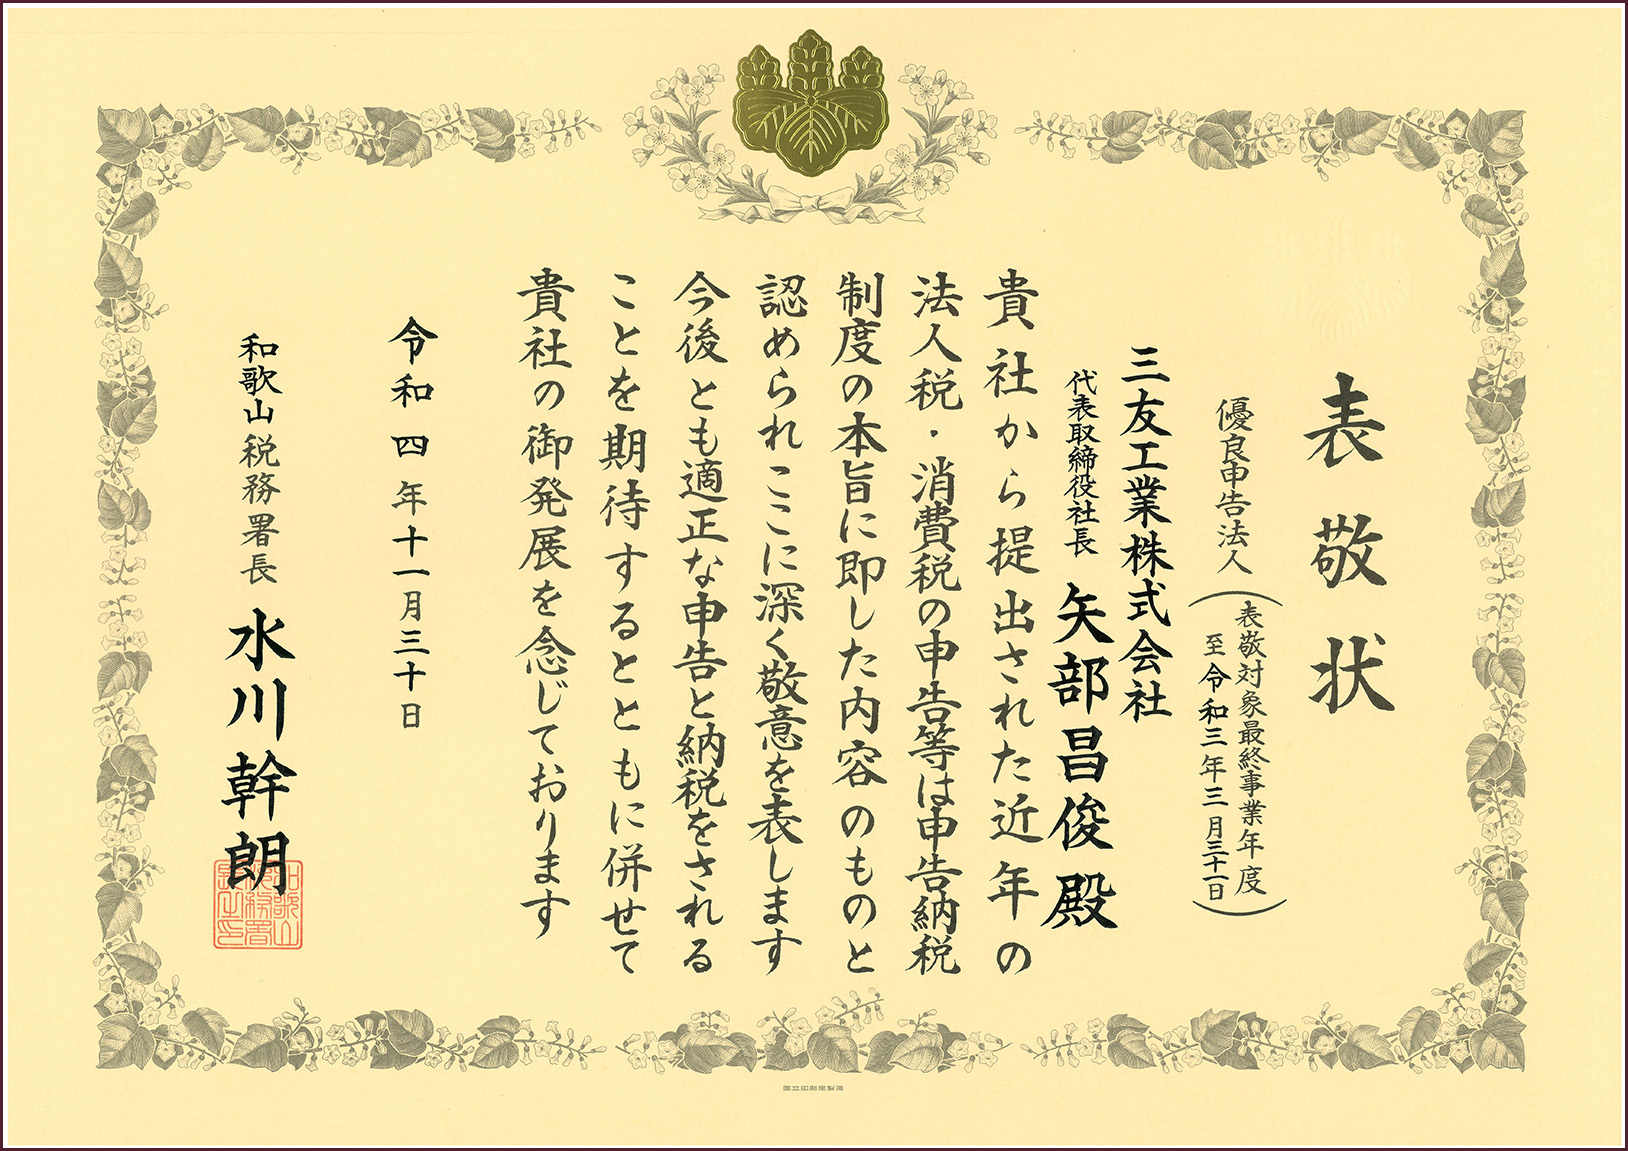 表敬状
優良申告法人
(表敬対象最終事業年度
至令和三年三月三十一日)
三友工業株式会社
代表取締役社長 矢部昌俊殿
貴社から提出された近年の
法人税・消費税の申告等は申告納税
制度の本旨に即した内容のものと
認められここに深く敬意を表します
今後とも適正な申告と納税をされる
ことを期待するとともに併せて
貴社の御発展を念じております
令和四年十一月三十日
和歌山税務署長 水川幹朗
国立印刷局製造